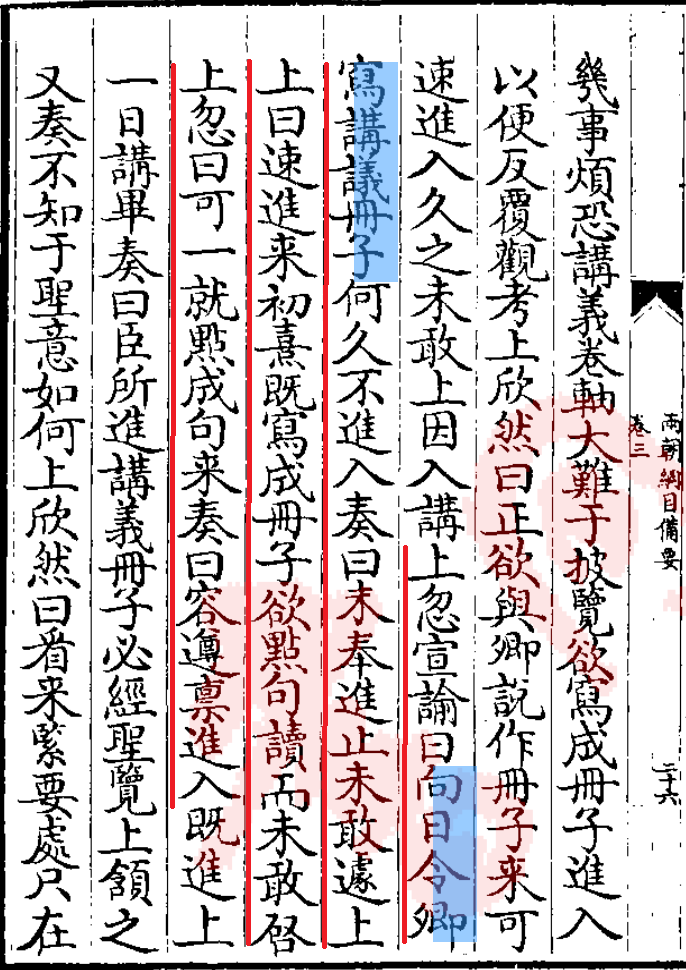 兩朝綱目備要
卷三
二十六
幾事煩恐講義卷軸大難于披覽欲寫成冊子進入
以便反覆觀考上欣然曰正欲與卿説作冊子来可
速進入久之未敢上因入講上忽宣諭曰向日令卿
寫講議冊子何久不進入奏曰未奉進止未敢遽上
上曰速進来初熹既寫成冊子欲點句讀而未敢啓
上忽曰可一就點成句来奏曰容遵禀進入既進上
一日講畢奏曰臣所進講義冊子必經聖覽上頷之
又奏不知于聖意如何上欣然曰看来緊要處只在